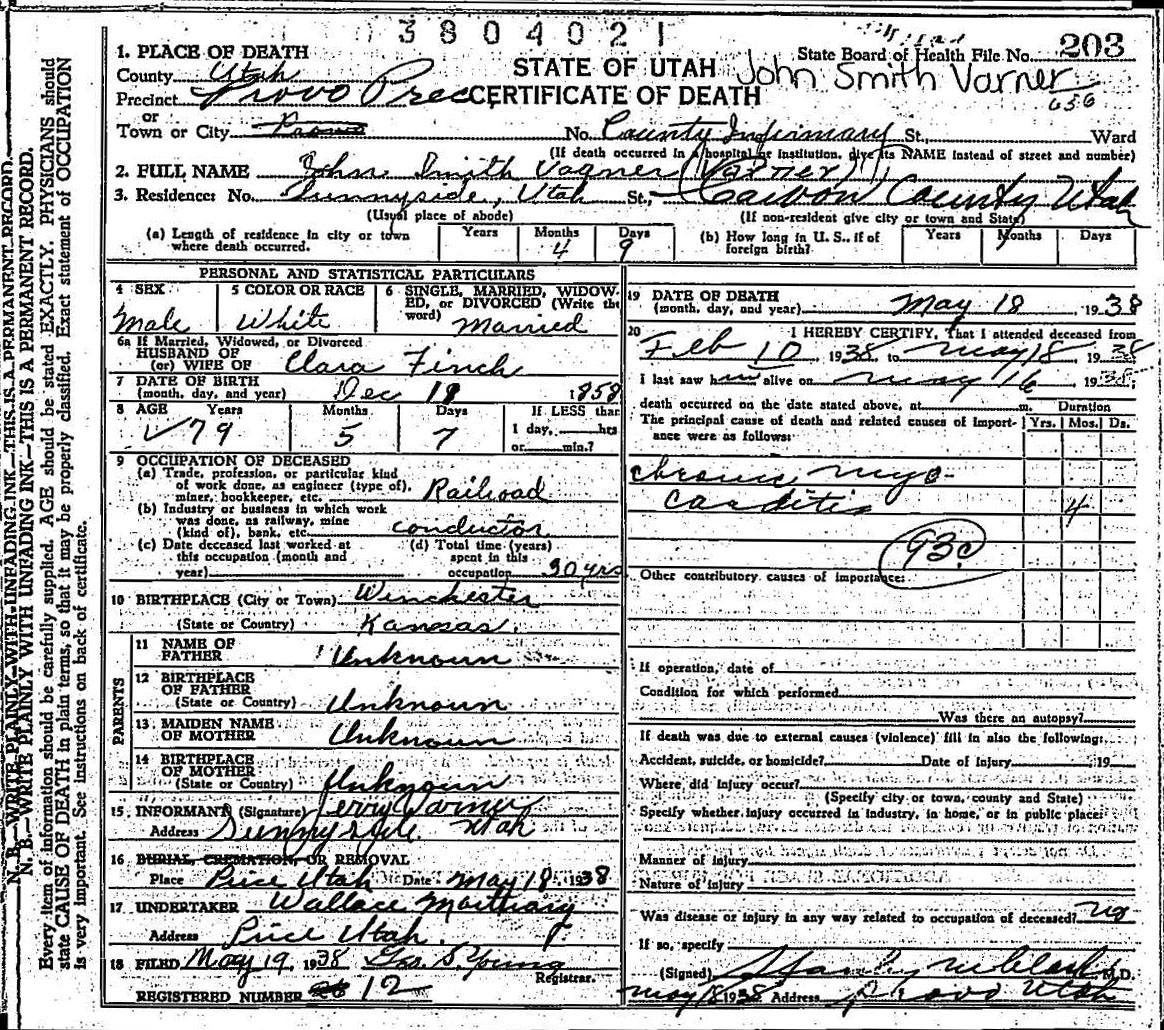 3804021
1. PLACE OF DEATH
County Utah
Precinct Provo Prec
or
Town or City Provo No. County Infirmary St., Ward
(If death occurred in a hospital or institution, give its NAME instead of street and number)
STATE OF UTAH
CERTIFICATE OF DEATH
State Board of Health File No. 203
John Smith Varner
656
2. FULL NAME John Smith Vagner (Varner)
3. Residence: No. Sunnyside, Utah St., Carbon County Utah
(Usual place of abode) (If non-resident give city or town and State)
(a) Length of residence in city or town where death occurred. Years Months 4 Days 9
(b) How long in U. S., if of foreign birth? Years Months Days
PERSONAL AND STATISTICAL PARTICULARS
4 SEX Male
5 COLOR OR RACE White
6 SINGLE, MARRIED, WIDOWED, or DIVORCED (Write the word) Married
6a If Married, Widowed, or Divorced
HUSBAND OF
(or) WIFE OF Clara Finch
7 DATE OF BIRTH
(month, day, and year) Dec 18 1858
8 AGE Years 79 Months 5 Days 7 If LESS than 1 day, hrs or min.?
9 OCCUPATION OF DECEASED
(a) Trade, profession, or particular kind
of work done, as engineer (type of),
miner, bookkeeper, etc. Railroad
(b) Industry or business in which work
was done, as railway, mine
(kind of), bank, etc. conductor
(c) Date deceased last worked at
this occupation (month and
year)
(d) Total time (years)
spent in this
occupation 30 yrs
10 BIRTHPLACE (City or Town) Winchester
(State or Country) Kansas.
PARENTS
11 NAME OF
FATHER Unknown
12 BIRTHPLACE
OF FATHER
(State or Country) Unknown
13 MAIDEN NAME
OF MOTHER Unknown
14 BIRTHPLACE
OF MOTHER
(State or Country) Unknown
15 INFORMANT (Signature) Jerry Varner
Address Sunnyside Utah
16 BURIAL, CREMATION, OR REMOVAL
Place Price Utah Date May 18 1938
17 UNDERTAKER Wallace Mortuary
Address Price Utah.
18 FILED May 19, 1938 Geo. S. Young
Registrar.
REGISTERED NUMBER 12
19 DATE OF DEATH
(month, day, and year) May 18 1938
20 I HEREBY CERTIFY, That I attended deceased from
Feb 10, 1938, to May 18 1938
I last saw him alive on May 16, 1938;
death occurred on the date stated above, at m. Duration
The principal cause of death and related causes of importance were as follows: Yrs. Mos. Ds.
chronic myo-
carditis 4
93c
Other contributory causes of importance:
If operation, date of
Condition for which performed
Was there an autopsy?
If death was due to external causes (violence) fill in also the following:
Accident, suicide, or homicide? Date of injury 19
Where did injury occur?
(Specify city or town, county and State)
Specify whether injury occurred in industry, in home, or in public place:
Manner of injury
Nature of injury
Was disease or injury in any way related to occupation of deceased? no
If so, specify
(Signed) Stanley M Clark M.D.
May 18 1938 Address Provo Utah
N. B.—WRITE PLAINLY WITH UNFADING INK—THIS IS A PERMANENT RECORD.
N. B.—WRITE PLAINLY WITH UNFADING INK—THIS IS A PERMANENT RECORD.
Every item of information should be carefully supplied. AGE should be stated EXACTLY. PHYSICIANS should
state CAUSE OF DEATH in plain terms, so that it may be properly classified. Exact statement of OCCUPATION
is very important. See instructions on back of certificate.